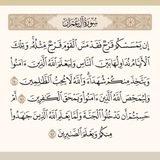 سورة آل عمران
إِن يَمْسَسْكُمْ قَرْحٌ فَقَدْ مَسَّ الْقَوْمَ قَرْحٌ مِّثْلُهُ وَتِلْكَ
الْأَيَّامُ نُدَاوِلُهَا بَيْنَ النَّاسِ وَلِيَعْلَمَ اللَّهُ الَّذِينَ آمَنُوا
وَيَتَّخِذَ مِنكُمْ شُهَدَاءَ وَاللَّهُ لَا يُحِبُّ الظَّالِمِينَ
وَلِيُمَحِّصَ اللَّهُ الَّذِينَ آمَنُوا وَيَمْحَقَ الْكَافِرِينَ أَمْ
حَسِبْتُمْ أَن تَدْخُلُوا الْجَنَّةَ وَلَمَّا يَعْلَمِ اللَّهُ الَّذِينَ جَاهَدُوا
مِنكُمْ وَيَعْلَمَ الصَّابِرِينَ